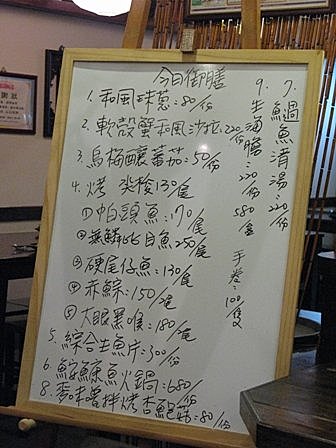 今日御膳
1. 和風味蔥:80/份
2. 軟殼蟹和風沙拉:220/份
3. 烏梅釀蕃茄:50/份
4. 烤 130/尾
①帕頭魚:170/尾
②無鱗比目魚250/尾
③硬尾仔魚:130/尾
④赤鯮:150/尾
⑤大眼黑喉:180/尾
5. 綜合生魚片:300/份
6. 魚火鍋:680/份
8. 烤杏鮑菇:80/份
7. 魚清湯:220/份
9. 生海膽:220/份 580/盒 手卷:100/隻
謝狀